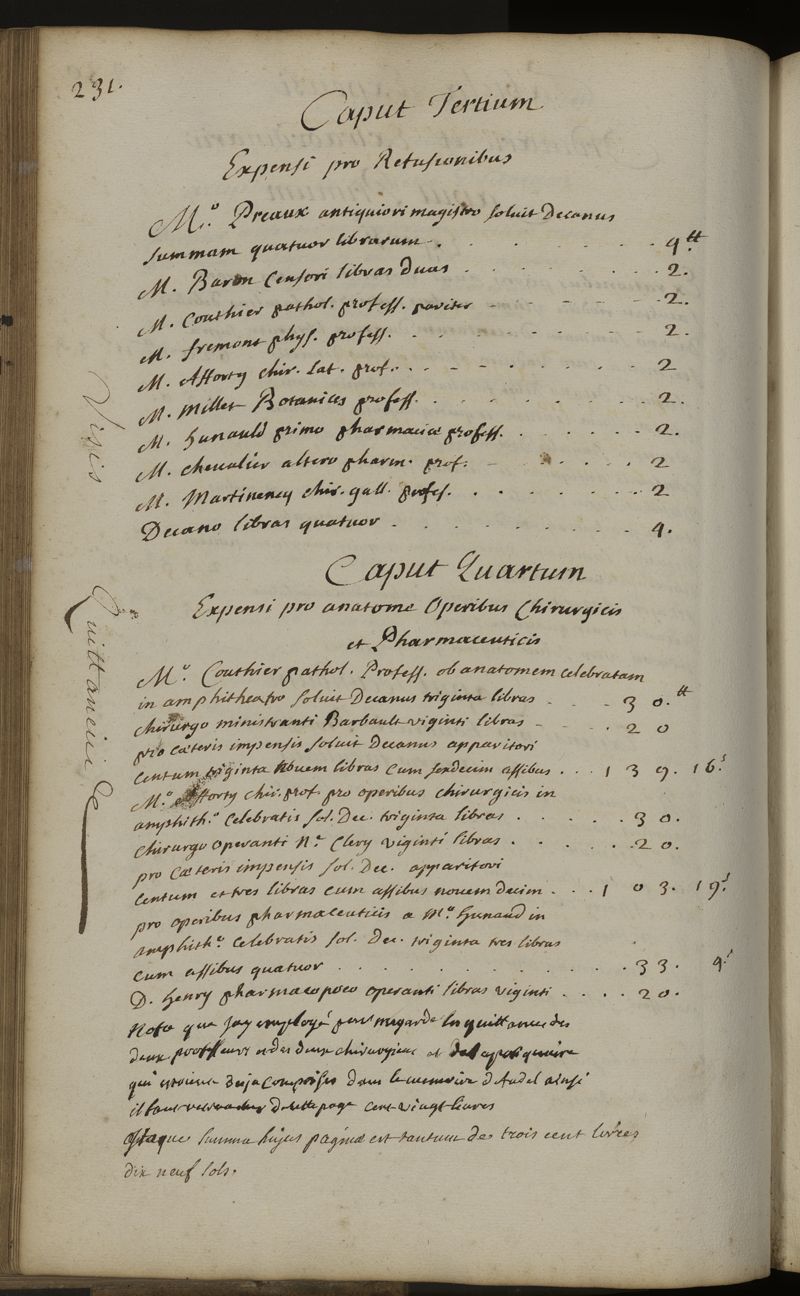 231.
Caput Tertium
Expensi pro Retusionibus
M.º Preaux antiquiori magistro soluit Decanus
summam quatuor librarum . . . . . . . 4.tt
M. Baron Censori libras duas . . . . . . 2.
M. Couthier pathol. profess. pariter - - - - - - 2.
M. fremont phys. profess. . . . . . . . 2.
M. Afforty chir. Lat. prof. . . - . . . . . 2
M. Millet Botanices profess. . . . . . . . 2.
M. hunauld primo pharmaciæ profess. . . . . . 2.
M. chevalier altero pharm. prof. - . . . . 2
M. Martinency chir. gall. profes. . . . . . . 2
Decano libras quatuor . . . . . . . . 4.
Visis
Quittanciis &
Caput Quartum
Expensi pro anatome Operibus Chirurgicis
et Pharmaceuticis
M.º Couthier pathol. Profess. ob anatomem celebratam
in amphitheatro soluit Decanus triginta libras - - - 30.tt
chirurgo ministranti Barbault viginti libras - - . . 20
pro cæteris impensis soluit Decanus apparitori
centum triginta novem libras cum sexdecim assibus . . . 139. 16.s
M.º Afforty chir. prof. pro operibus chirurgicis in
amphith.º celebratis sol. Dec. triginta libras . . . . . 30.
chirurgo operanti N.º Clery viginti libras . . . . . . 20.
pro cæteris impensis sol. Dec. apparitori
centum et tres libras cum assibus novemdecim . . . 103. 19.s
pro operibus pharmaceuticis a M.º hunaud in
amphith.º celebratis sol. Dec. triginta tres libras
cum assibus quatuor . . . . . . . . . . . 33. 4.s
D. henry pharmacopoeo operanti libras viginti . . . . 20.
Nota que jay employé par megarde les quittances des
deux professeurs et des deux chirurgiens et de l'apotiquaire
qui etoient deja comprises dans le memoire d'Audel ainsi
il faut retrancher de cette page cent vingt livres
Itaque summa hujus paginæ est tantum de trois cent livres
dix neuf sols.